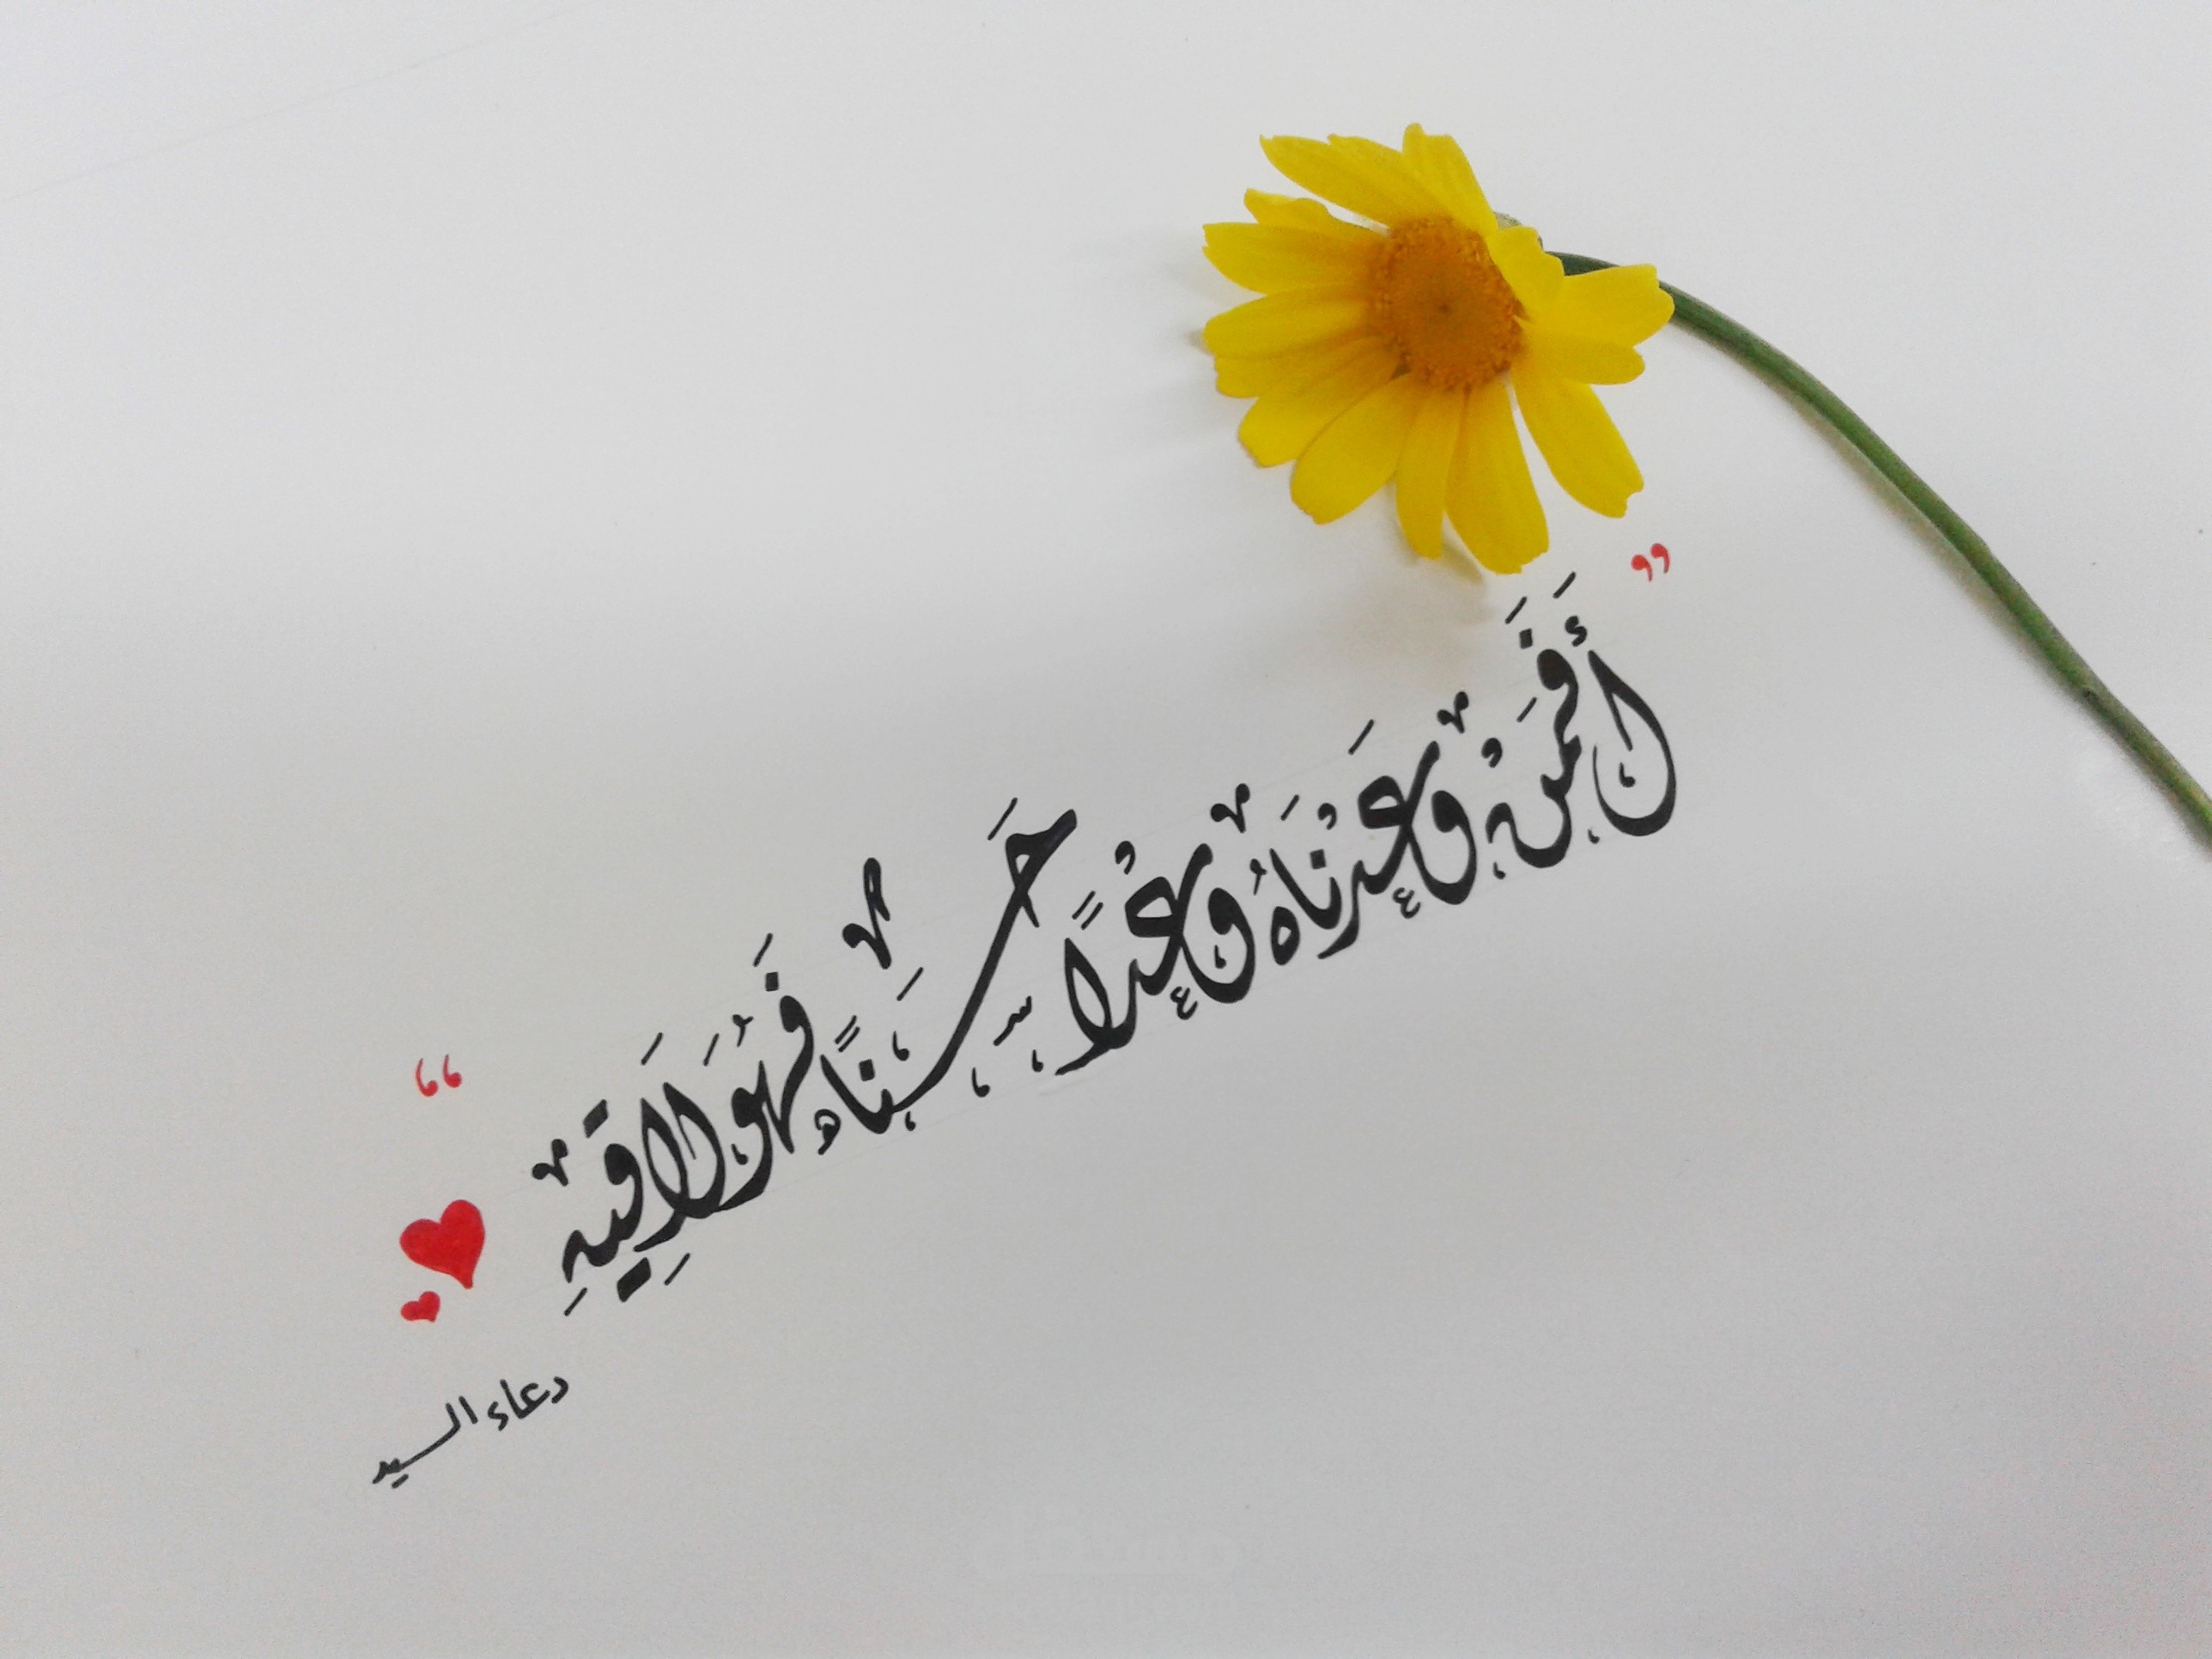 " أَفَمَنْ وَعَدْنَاهُ وَعْدًا حَسَنًا فَهُوَ لَاقِيهِ "
دعاء السيد
مستقل